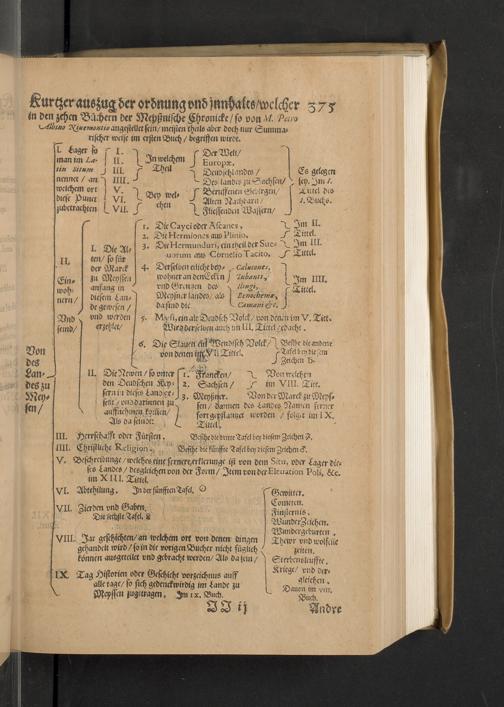 Kurtzer auszug der ordnung vnd jnnhalts/welcher 375
in den zehen Büchern der Meyßnische Chronicke/ so von M. Petro
Albino Niuemontio angestellet sein/ meisten theils aber doch nur Summa-
rischer weise im ersten Buch/ begriffen wirdt.
I. Lager so
man im La-
tin Situm
nennet/ an
welchem ort
diese Punct
zubetrachten
I.
II.
III.
IIII.
V.
VI.
VII.
In welchem
Theil
Bey wel-
chen
Der Welt/
Europæ.
Deudschlandes/
Des landes zu Sachsen/
Beruffenen Gebirgen/
Alten Nachbarn/
Fliessenden Wassern/
Es gelegen
sey. Im 1.
Tittel des
1. Buchs.
Von
des
Lan-
des zu
Mey-
sen/
II.
Ein-
woh-
nern/
Vnd
seind/
I. Die Al-
ten/ so für
der Marck
zu Meyssen
anfang in
diesem Lan-
de gewesen/
vnd werden
erzehlet/
1. Die Cayci oder Ascanes,
2. Die Hermiones aus Plinio.
Im II.
Tittel.
3. Die Hermunduri, ein theil der Sue-
uorum aus Cornelio Tacito.
Im III.
Tittel.
4. Derselben etliche bey-
wohner an den Ecken
vnd Grentzen des
Meysner landes/ als
da seind die
Calucones,
Lubanti,
Ilingi,
Camani &c.
Im IIII.
Tittel.
5. Mysi, ein alt Deudsch Volck/ von denen im V. Titt.
Wird derselben auch im III. Tittel gedacht.
6. Die Slauen ein Wendisch Volck/
von denen im VI. Tittel.
Besihe die andere
Tafel bey diesem
Zeichen ♄.
II. Die Newen/ so vnter
den Deudschen Key-
sern in dieses Land ge-
setzt/ vnd darinnen zu
auffnehmen kommen/
Als da seindt
1. Francken/
2. Sachsen/
Von welchen
im VIII. Titt.
3. Meyßner. Von der Marck zu Meys-
sen/ dannen des Landes Namen ferner
fortgepflantzet worden/ folget im IX.
Tittel.
III. Herrschafft oder Fürsten. Besihe die dritte Tafel bey diesem Zeichen ♃.
IIII. Christliche Religion. Besihe die fünffte Tafel bey diesem Zeichen ♂.
V. Beschreibunge/ welches eine fernere erklerunge ist von dem Situ, oder Lager die-
ses Landes/ desgleichen von der Form/ Item von der Eleuation Poli, &c.
im XIII. Tittel.
VI. Abtheilung. In der fünfften Tafel. ☉
VII. Zierden vnd Gaben.
Die sechste Tafel.
VIII. Jar geschichten/ an welchem ort von denen dingen
gehandelt wird/ so in die vorigen Bücher nicht füglich
können ausgeteilet vnd gebracht werden/ Als da sein/
Gewitter.
Cometen.
Finsternis.
WunderZeichen.
Wundergeburten.
Thewr vnd wolfeile
zeiten.
Sterbensleuffte.
Kriege/ vnd der-
gleichen.
Dauon im VIII.
Buch.
IX. Tag Historien oder Geschicht vorzeichnus auff
alle tage/ so sich gedenckwirdig im Lande zu
Meyssen zugetragen. Im IX. Buch.
JJ ij Andre